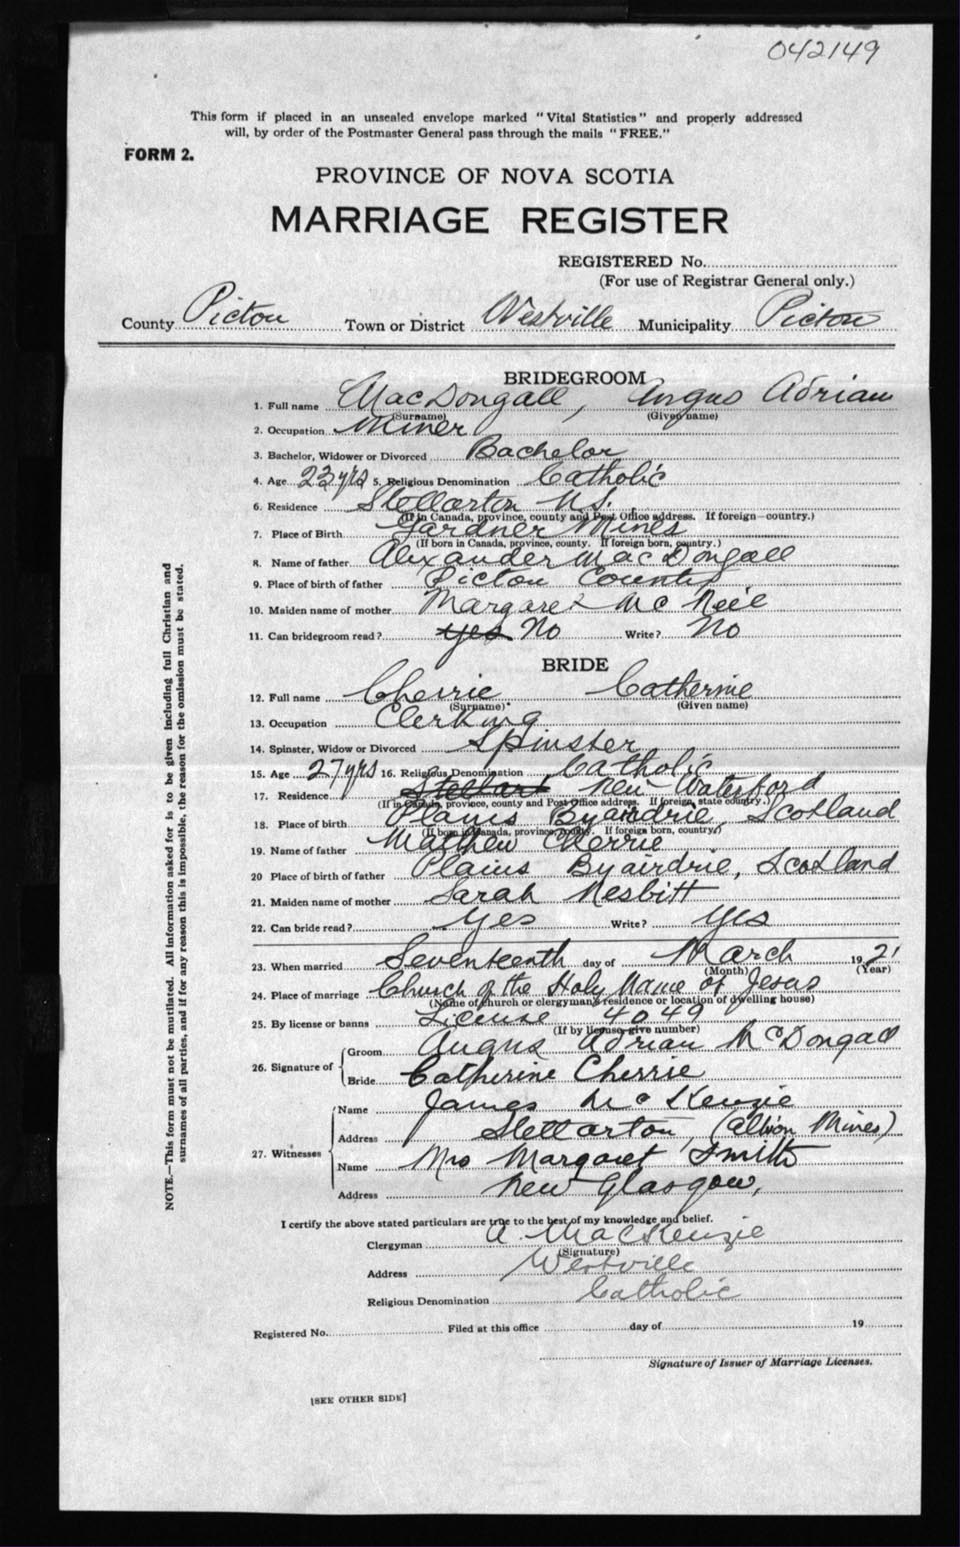 042149
This form if placed in an unsealed envelope marked "Vital Statistics" and properly addressed
will, by order of the Postmaster General pass through the mails "FREE."
FORM 2.
PROVINCE OF NOVA SCOTIA
MARRIAGE REGISTER
REGISTERED No.
(For use of Registrar General only.)
County Pictou Town or District Westville Municipality Pictou
BRIDEGROOM
1. Full name MacDongall, Angus Adrian
(Surname) (Given name)
2. Occupation Miner
3. Bachelor, Widower or Divorced Bachelor
4. Age 23 yrs 5. Religious Denomination Catholic
6. Residence Stellarton N.S.
(If in Canada, province, county and Post Office address. If foreign country.)
7. Place of Birth Gardner Mines
(If born in Canada, province, county. If foreign born, country.)
8. Name of father Alexander MacDongall
9. Place of birth of father Pictou County
10. Maiden name of mother Margaret McNeil
11. Can bridegroom read? yes No Write? No
BRIDE
12. Full name Cherrie Catherine
(Surname) (Given name)
13. Occupation Clerking
14. Spinster, Widow or Divorced Spinster
15. Age 27 yrs 16. Religious Denomination Catholic
17. Residence New Waterford
(If in Canada, province, county and Post Office address. If foreign, state country.)
18. Place of birth Plains Byairdrie, Scotland
(If born in Canada, province, county. If foreign born, country)
19. Name of father Matthew Cherrie
20 Place of birth of father Plains Byairdrie, Scotland
21. Maiden name of mother Sarah Nesbitt
22. Can bride read? yes Write? yes
23. When married Seventeenth day of March 1921
(Month) (Year)
24. Place of marriage Church of the Holy Name of Jesus
(Name of church or clergyman's residence or location of dwelling house)
25. By license or banns License 4049
(If by license give number)
26. Signature of Groom Angus Adrian McDongall
Bride Catherine Cherrie
27. Witnesses Name James McKenzie
Address Stellarton (Albion Mines)
Name Mrs Margaret Smith
Address New Glasgow,
I certify the above stated particulars are true to the best of my knowledge and belief.
Clergyman A. MacKenzie
(Signature)
Address Westville
Religious Denomination Catholic
Registered No. Filed at this office day of 19
Signature of Issuer of Marriage Licenses.
[SEE OTHER SIDE]
NOTE.—This form must not be mutilated. All information asked for is to be given including full Christian and
surnames of all parties, and if for any reason this is impossible, the reason for the omission must be stated.